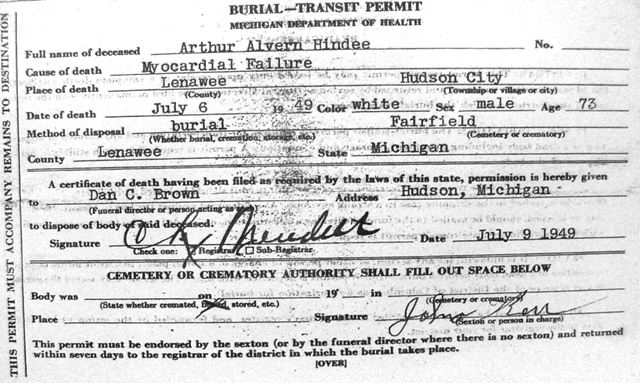 BURIAL—TRANSIT PERMIT
MICHIGAN DEPARTMENT OF HEALTH
Full name of deceased Arthur Alvern Hindee No.
Cause of death Myocardial Failure
Place of death Lenawee Hudson City
(County) (Township or village or city)
Date of death July 6 1949 Color white Sex male Age 73
Method of disposal burial Fairfield
(Whether burial, cremation, storage, etc.) (Cemetery or crematory)
County Lenawee State Michigan
A certificate of death having been filed as required by the laws of this state, permission is hereby given
to Dan C. Brown Address Hudson, Michigan
(Funeral director or person acting as such)
to dispose of body of said deceased.
Signature Date July 9 1949
Check one: Registrar Sub-Registrar
CEMETERY OR CREMATORY AUTHORITY SHALL FILL OUT SPACE BELOW
Body was on 19 in
(State whether cremated, buried, stored, etc.) (Cemetery or crematory)
Place Signature John Kerr
(Sexton or person in charge)
This permit must be endorsed by the sexton (or by the funeral director where there is no sexton) and returned
within seven days to the registrar of the district in which the burial takes place.
[OVER]
THIS PERMIT MUST ACCOMPANY REMAINS TO DESTINATION